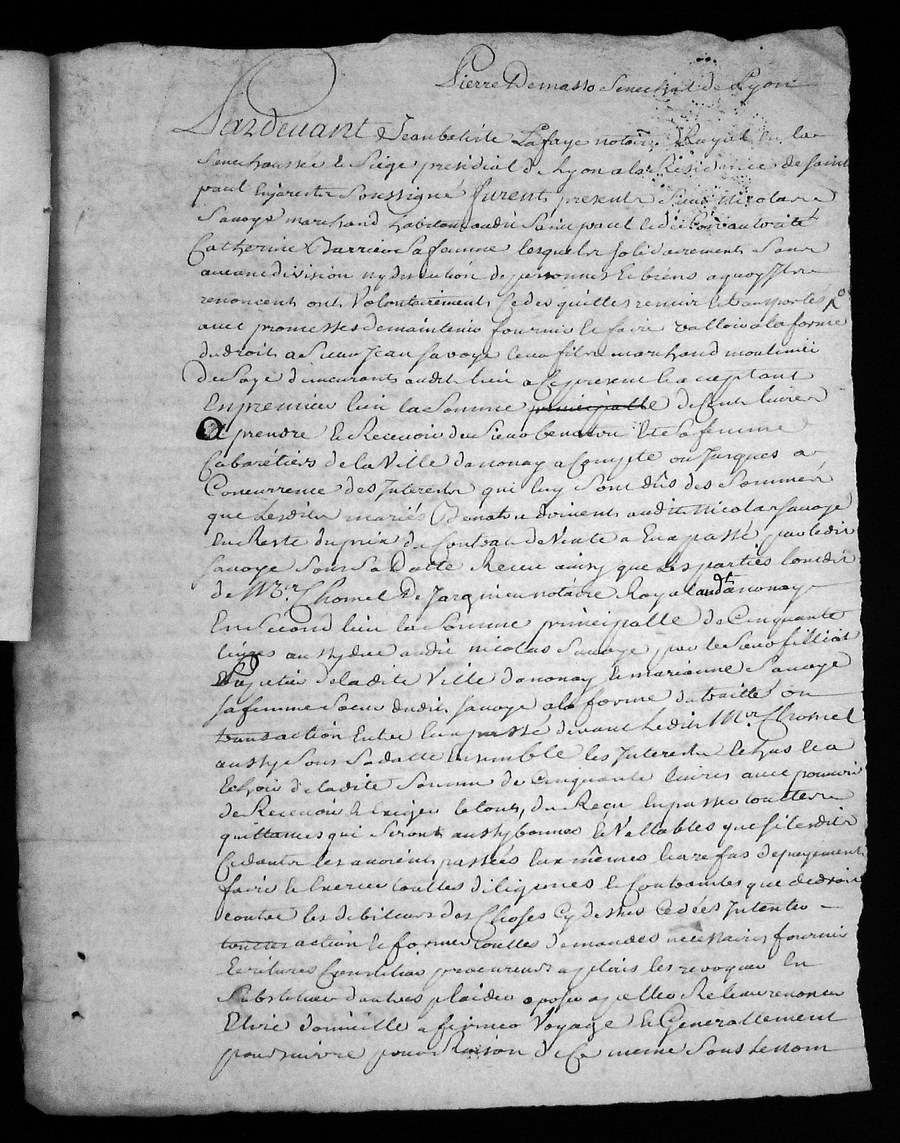 Pierre Demasso Senechal de Lyon
Pardevant Jean batiste Lafaye notaire Royal en la
Senechaussée et Siege presidial de Lyon a la Residence de Saint
paul Enjarestz Soussigné furent presents Sieur Nicolas
Savoye marchand habitant audit Saint paul et de Son autorité
Catherine Barriere Sa femme lesquels solidairement Sans
aucune division ny discution de personnes et biens a quoy Ils
renoncent ont Volontairement Cedes quittes remis et transportés
avec promesses de maintenir fournir et faire valloir a la forme
du droit a Sieur Jean Savoye leur fils marchand moulinier
de Soye demeurant audit lieu a ce present et acceptant
En premier lieu la Somme principalle de Cent livres
A prendre et Recevoir du Sieur benaton Et de Sa femme
Cabarétiers de la Ville danonay a Compte ou Jusques a
Concurrence des Interests qui luy Sont dûs des Sommes
que Lesdits mariés Benaton doivent audit Nicolas Savoye
En Reste du prix du Contrat de Vente a Eux passé par ledit
Savoye Sous Sa Datte Receu ainsy que les parties lon dit
de Mr. Chomel De Jarquieu notaire Royal audt. anonay
En Second lieu la Somme principalle de Cinquante
livres aussy due audit nicolas Savoye par le Sieur filliat
de ladite Ville danonay et marianne Savoye
Sa femme Soeur dudit Savoye a la forme du traitté ou
transaction Entre Eux passé devant Ledit Mr. Chomel
aussy Sous Sa datte ensemble les Interests Echus et a
Echoir de ladite Somme de Cinquante livres avec pouvoir
de Recevoir et exiger le tout, du Reçu En passer touttes
quittances qui Seront aussy bonnes et Vallables que Si lesdits
Cedants les avoient passées eux mêmes et a refus de payement
faire et Exercer touttes diligences et Contraintes que de droit
contre les debiteurs des Choses Cy dessus Cedées Intenter
touttes action et former touttes demandes necessaires fournir
Ecritures Constituer procureurs a plais les revoquer En
Substituer dautres plaider oposer apeller Relever renoncer
Elire domicille afirmer Voyage et Generallement
poursuivre pour Raison de Ce meme Sous le nom